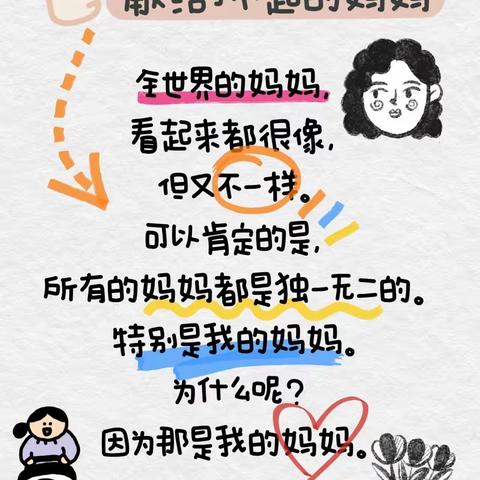 献给了不起的妈妈
全世界的妈妈,
看起来都很像,
但又不一样。
可以肯定的是,
所有的妈妈都是独一无二的。
特别是我的妈妈。
为什么呢?
因为那是我的妈妈。